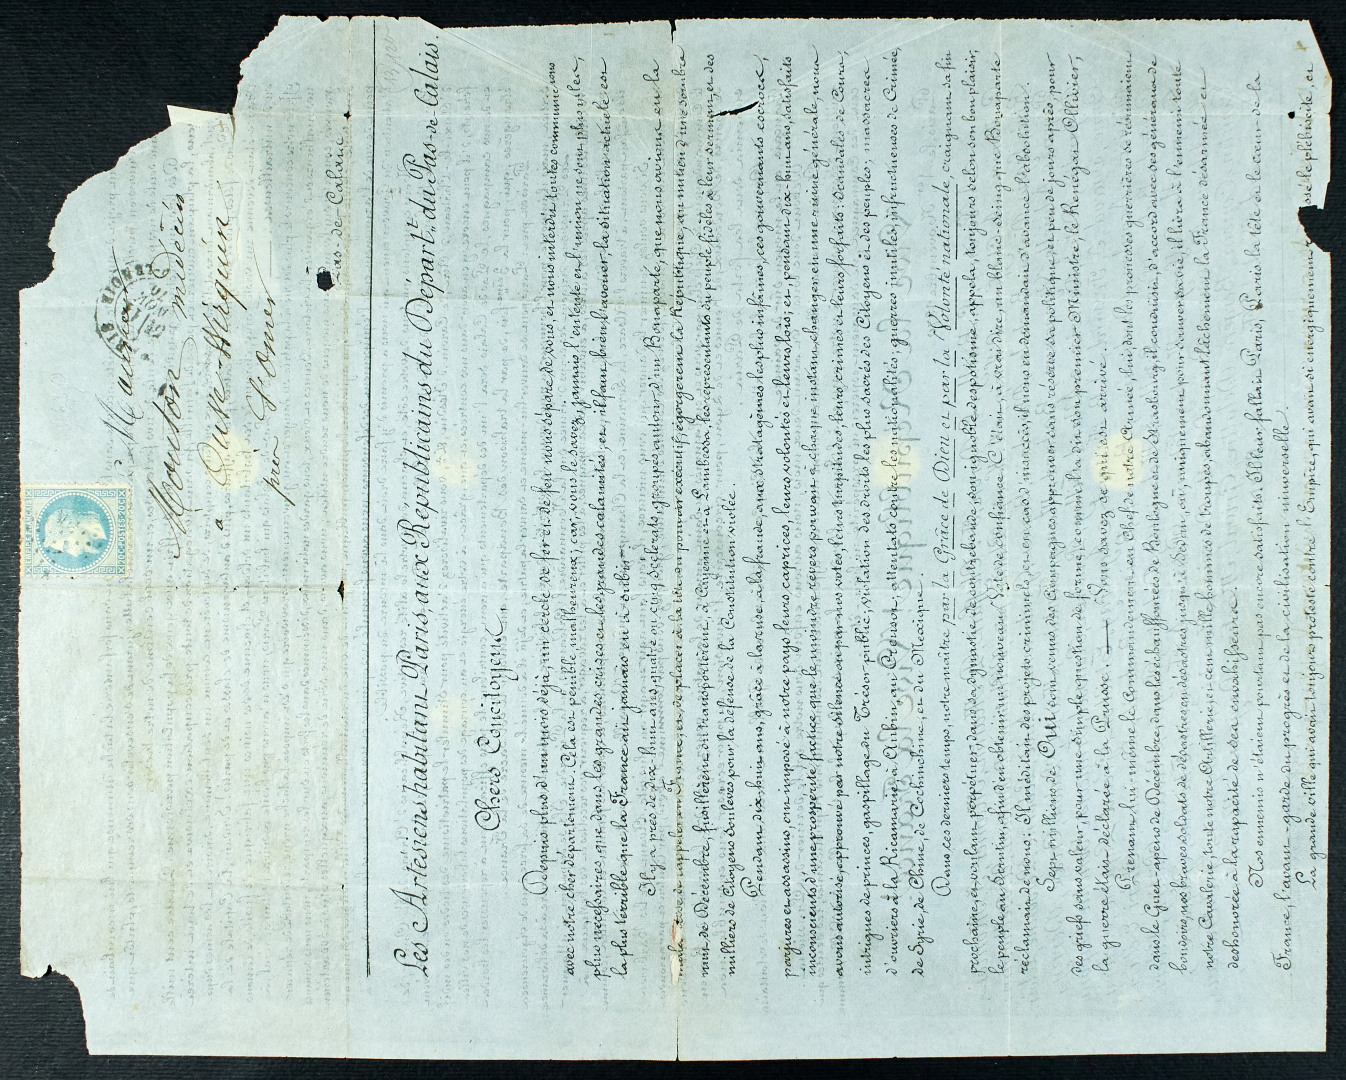 Monsieur
Mouton médecin
à Auxe-Wirquin
près St Omer
Pas-de-Calais
Les Artésiens habitant Paris, aux Républicains du Départ.t du Pas-de-Calais.
Chers Concitoyens,
Depuis plus d'un mois déjà, un cercle de fer et de feu nous sépare de vous, et nous interdit toutes communications
avec notre cher département. Cela est pénible, malheureux; car, vous le savez, jamais l'entente et l'union ne sont plus utiles,
plus nécessaires, que dans les grandes crises et les grandes calamités, et, il faut bien l'avouer, la situation actuelle est
la plus terrible que la France ait jamais eu à subir.
Il y a près de dix-huit ans, quatre ou cinq scélérats, groupés autour d'un Bonaparte, que nous avions eu la
de rappeler en France, et de placer à la tête du pouvoir exécutif, égorgèrent la République, au milieu d'une sombre
nuit de Décembre, fusillèrent ou transportèrent, à Cayenne et à Lambessa, les représentants du peuple fidèles à leur serment, et des
milliers de Citoyens soulevés pour la défense de la Constitution violée.
Pendant dix-huit ans, grâce à la ruse, à la fraude, aux stratagèmes les plus infâmes, ces gouvernants escrocs,
parjures et assassins, ont imposé à notre pays leurs caprices, leurs volontés et leurs lois; et, pendant dix-huit ans, satisfaits
inconscients d'une prospérité factice que le moindre revers pouvait à chaque instant changer en une ruine générale, nous
avons autorisé, approuvé par notre silence ou par nos votes, leurs turpitudes, leurs crimes et leurs forfaits: Scandales de Cours,
intrigues de princes, gaspillage du Trésor public, violation des droits les plus sacrés des Citoyens et des peuples, massacres
d'ouvriers à la Ricamarie, à Aubin, au Creusot, attentats contre les nationalités, guerres inutiles, infructueuses de Crimée,
de Syrie, de Chine, de Cochinchine, et du Mexique.
Dans ces derniers temps, notre maître par la Grâce de Dieu et par la Volonté nationale, craignant sa fin
prochaine, et voulant perpétuer, dans sa dynastie de contrebande, son ignoble despotisme, appela, toujours selon son bon plaisir,
le peuple au Scrutin, afin d'en obtenir un nouveau Vote de confiance. C'était, à vrai dire, un blanc-seing que Bonaparte
réclamait de nous: Il méditait des projets criminels, et, en cas d'insuccès, il nous en demandait d'avance l'absolution.
Sept millions de Oui sont venus des Campagnes approuver sans réserve sa politique, et, peu de jours après, pour
des griefs sans valeur, pour une simple question de forme, comme l'a dit son premier Ministre, le Renégat Ollivier,
la guerre était déclarée à la Prusse. — Vous savez ce qui est arrivé.
Prenant, lui-même le Commandement en Chef de notre Armée, lui, dont les prouesses guerrières se résumaient
dans le Guet-apens de Décembre, dans les échauffourées de Boulogne et de Strasbourg, il conduisit, d'accord avec des généraux de
boudoirs, nos braves soldats de désastres en désastres jusqu'à Sedan, où, uniquement pour sauver sa vie, il livra à l'ennemi toute
notre Cavalerie, toute notre Artillerie, et cent mille hommes de troupes, abandonnant lâchement la France désarmée et
déshonorée à la rapacité de ses envahisseurs.
Nos ennemis n'étaient pourtant pas encore satisfaits. Il leur fallait Paris, Paris la tête et le cœur de la
France, l'avant-garde du progrès et de la civilisation universelle.
La grande ville qui avait toujours protesté contre l'Empire, qui avait si énergiquement le plébiscite, et